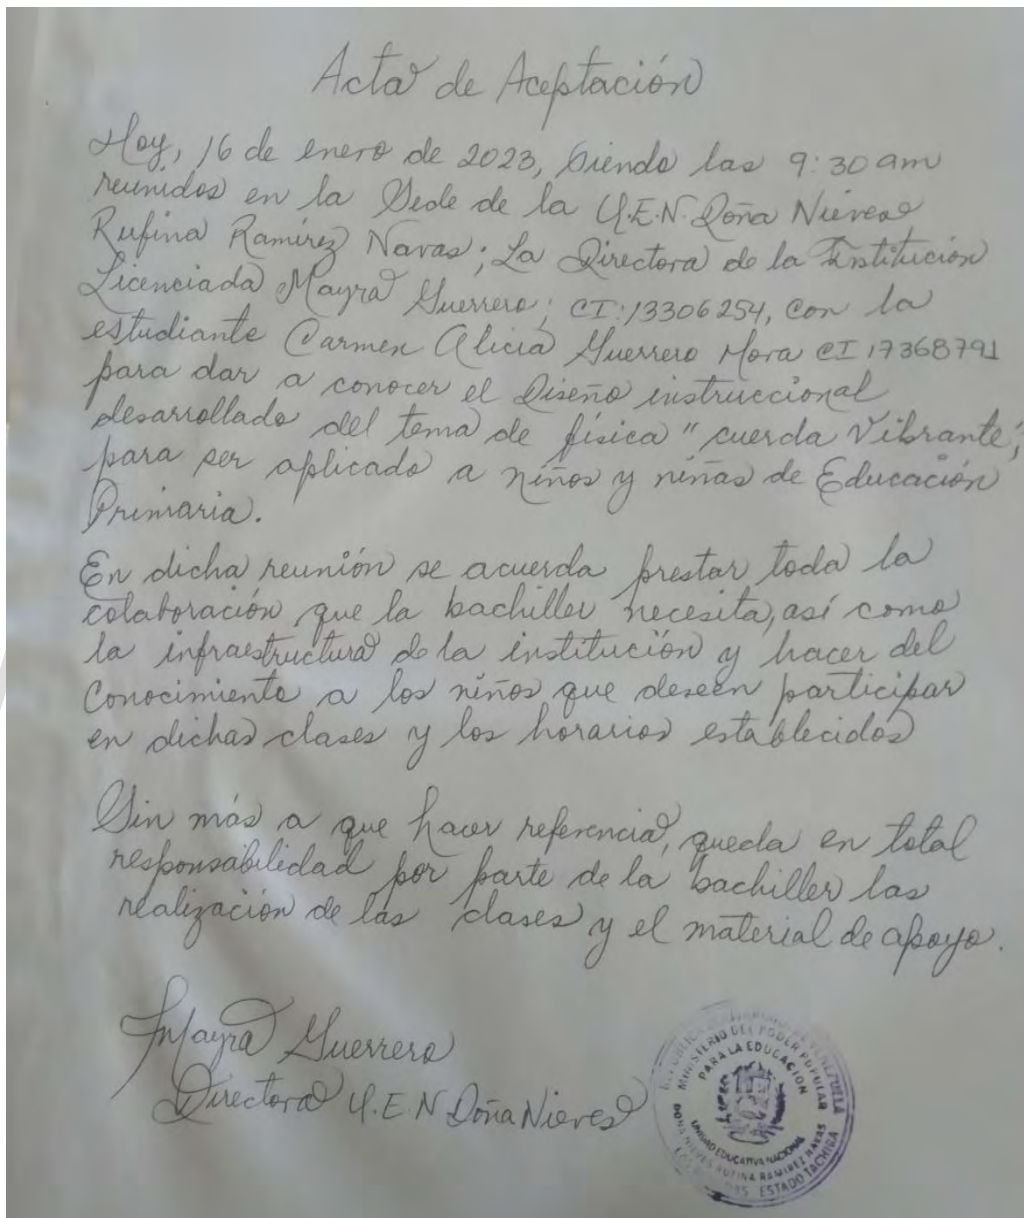 Acta de Aceptación
Hoy, 16 de enero de 2023, siendo las 9:30 am
reunidos en la Sede de la U.E.N. Doña Nieves
Rufina Ramírez Navas; La Directora de la Institución
Licenciada Mayra Guerrero; CI: 13306254, con la
estudiante Carmen Alicia Guerrero Mora CI 17368791
para dar a conocer el Diseño instruccional
desarrollado del tema de física "cuerda Vibrante",
para ser aplicado a niños y niñas de Educación
Primaria.
En dicha reunión se acuerda prestar toda la
colaboración que la bachiller necesita, así como
la infraestructura de la institución y hacer del
Conocimiento a los niños que deseen participar
en dichas clases y los horarios establecidos
Sin más a que hacer referencia, queda en total
responsabilidad por parte de la bachiller las
realización de las clases y el material de apoyo.
Mayra Guerrero
Directora U.E.N Doña Nieves
VENEZUELA
MINISTERIO DEL PODER POPULAR
PARA LA EDUCACIÓN
UNIDAD EDUCATIVA NACIONAL
DOÑA NIEVES RUFINA RAMIREZ NAVAS
ESTADO TACHIRA